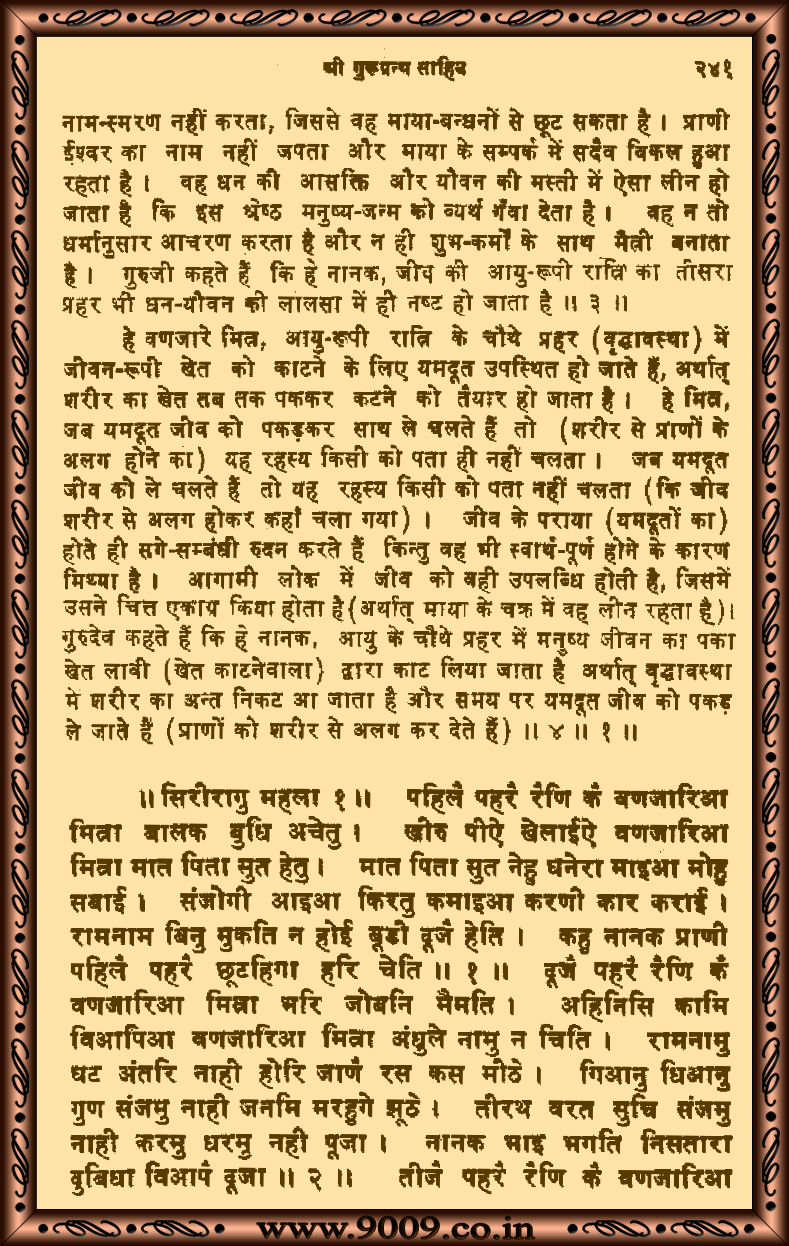 श्री गुरुग्रन्थ साहिब २४१
नाम-स्मरण नहीं करता, जिससे वह माया-बन्धनों से छूट सकता है। प्राणी
ईश्वर का नाम नहीं जपता और माया के सम्पर्क में सदैव विकल हुआ
रहता है। वह धन की आसक्ति और यौवन की मस्ती में ऐसा लीन हो
जाता है कि इस श्रेष्ठ मनुष्य-जन्म को व्यर्थ गँवा देता है। वह न तो
धर्मानुसार आचरण करता है और न ही शुभ-कर्मों के साथ मैत्री बनाता
है। गुरुजी कहते हैं कि हे नानक, जीव की आयु-रूपी रात्रि का तीसरा
प्रहर भी धन-यौवन की लालसा में ही नष्ट हो जाता है ॥ ३ ॥
हे वणजारे मित्र, आयु-रूपी रात्रि के चौथे प्रहर (वृद्धावस्था) में
जीवन-रूपी खेत को काटने के लिए यमदूत उपस्थित हो जाते हैं, अर्थात्
शरीर का खेत तब तक पककर कटने को तैयार हो जाता है। हे मित्र,
जब यमदूत जीव को पकड़कर साथ ले चलते हैं तो (शरीर से प्राणों के
अलग होने का) यह रहस्य किसी को पता ही नहीं चलता। जब यमदूत
जीव को ले चलते हैं तो यह रहस्य किसी को पता नहीं चलता (कि जीव
शरीर से अलग होकर कहाँ चला गया)। जीव के पराया (यमदूतों का)
होते ही सगे-सम्बंधी रुदन करते हैं किन्तु वह भी स्वार्थ-पूर्ण होने के कारण
मिथ्या है। आगामी लोक में जीव को वही उपलब्धि होती है, जिसमें
उसने चित्त एकाग्र किया होता है (अर्थात् माया के चक्र में वह लीन रहता है)।
गुरुदेव कहते हैं कि हे नानक, आयु के चौथे प्रहर में मनुष्य जीवन का पका
खेत लावी (खेत काटनेवाला) द्वारा काट लिया जाता है अर्थात् वृद्धावस्था
में शरीर का अन्त निकट आ जाता है और समय पर यमदूत जीव को पकड़
ले जाते हैं (प्राणों को शरीर से अलग कर देते हैं) ॥ ४ ॥ १ ॥
॥ सिरीरागु महला १ ॥ पहिलै पहरै रैणि कै वणजारिआ
मित्रा बालक बुधि अचेतु। खीरु पीऐ खेलाईऐ वणजारिआ
मित्रा मात पिता सुत हेतु। मात पिता सुत नेहु घनेरा माइआ मोहु
सबाई। संजोगी आइआ किरतु कमाइआ करणी कार कराई।
रामनाम बिनु मुकति न होई बूडी दूजै हेति। कहु नानक प्राणी
पहिलै पहरै छूटहिगा हरि चेति ॥ १ ॥ दूजै पहरै रैणि कै
वणजारिआ मित्रा भरि जोबनि मैमति। अहिनिसि कामि
विआपिआ वणजारिआ मित्रा अंधुले नामु न चिति। रामनामु
घट अंतरि नाही होरि जाणै रस कस मीठे। गिआनु धिआनु
गुण संजमु नाही जनमि मरहुगे झूठे। तीरथ वरत सुचि संजमु
नाही करमु धरमु नही पूजा। नानक भाइ भगति निसतारा
दुबिधा विआपै दूजा ॥ २ ॥ तीजै पहरै रैणि कै वणजारिआ
www.9009.co.in